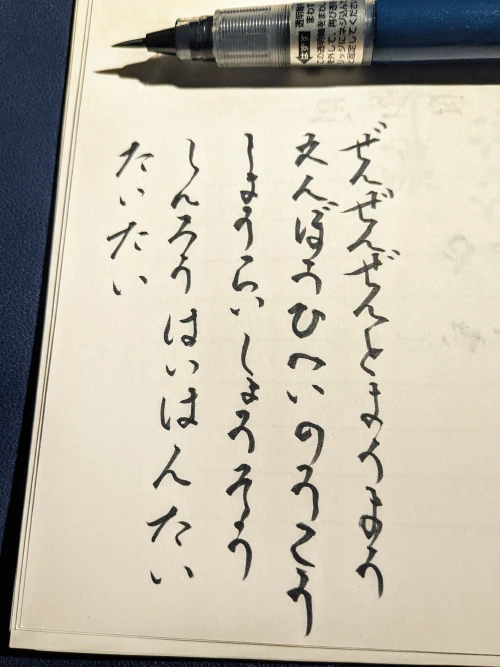 ぜんぜんぜんとようよう
えんぼうひへいのうこう
しようらいしようそう
しんろうはいはんたい
たいたい